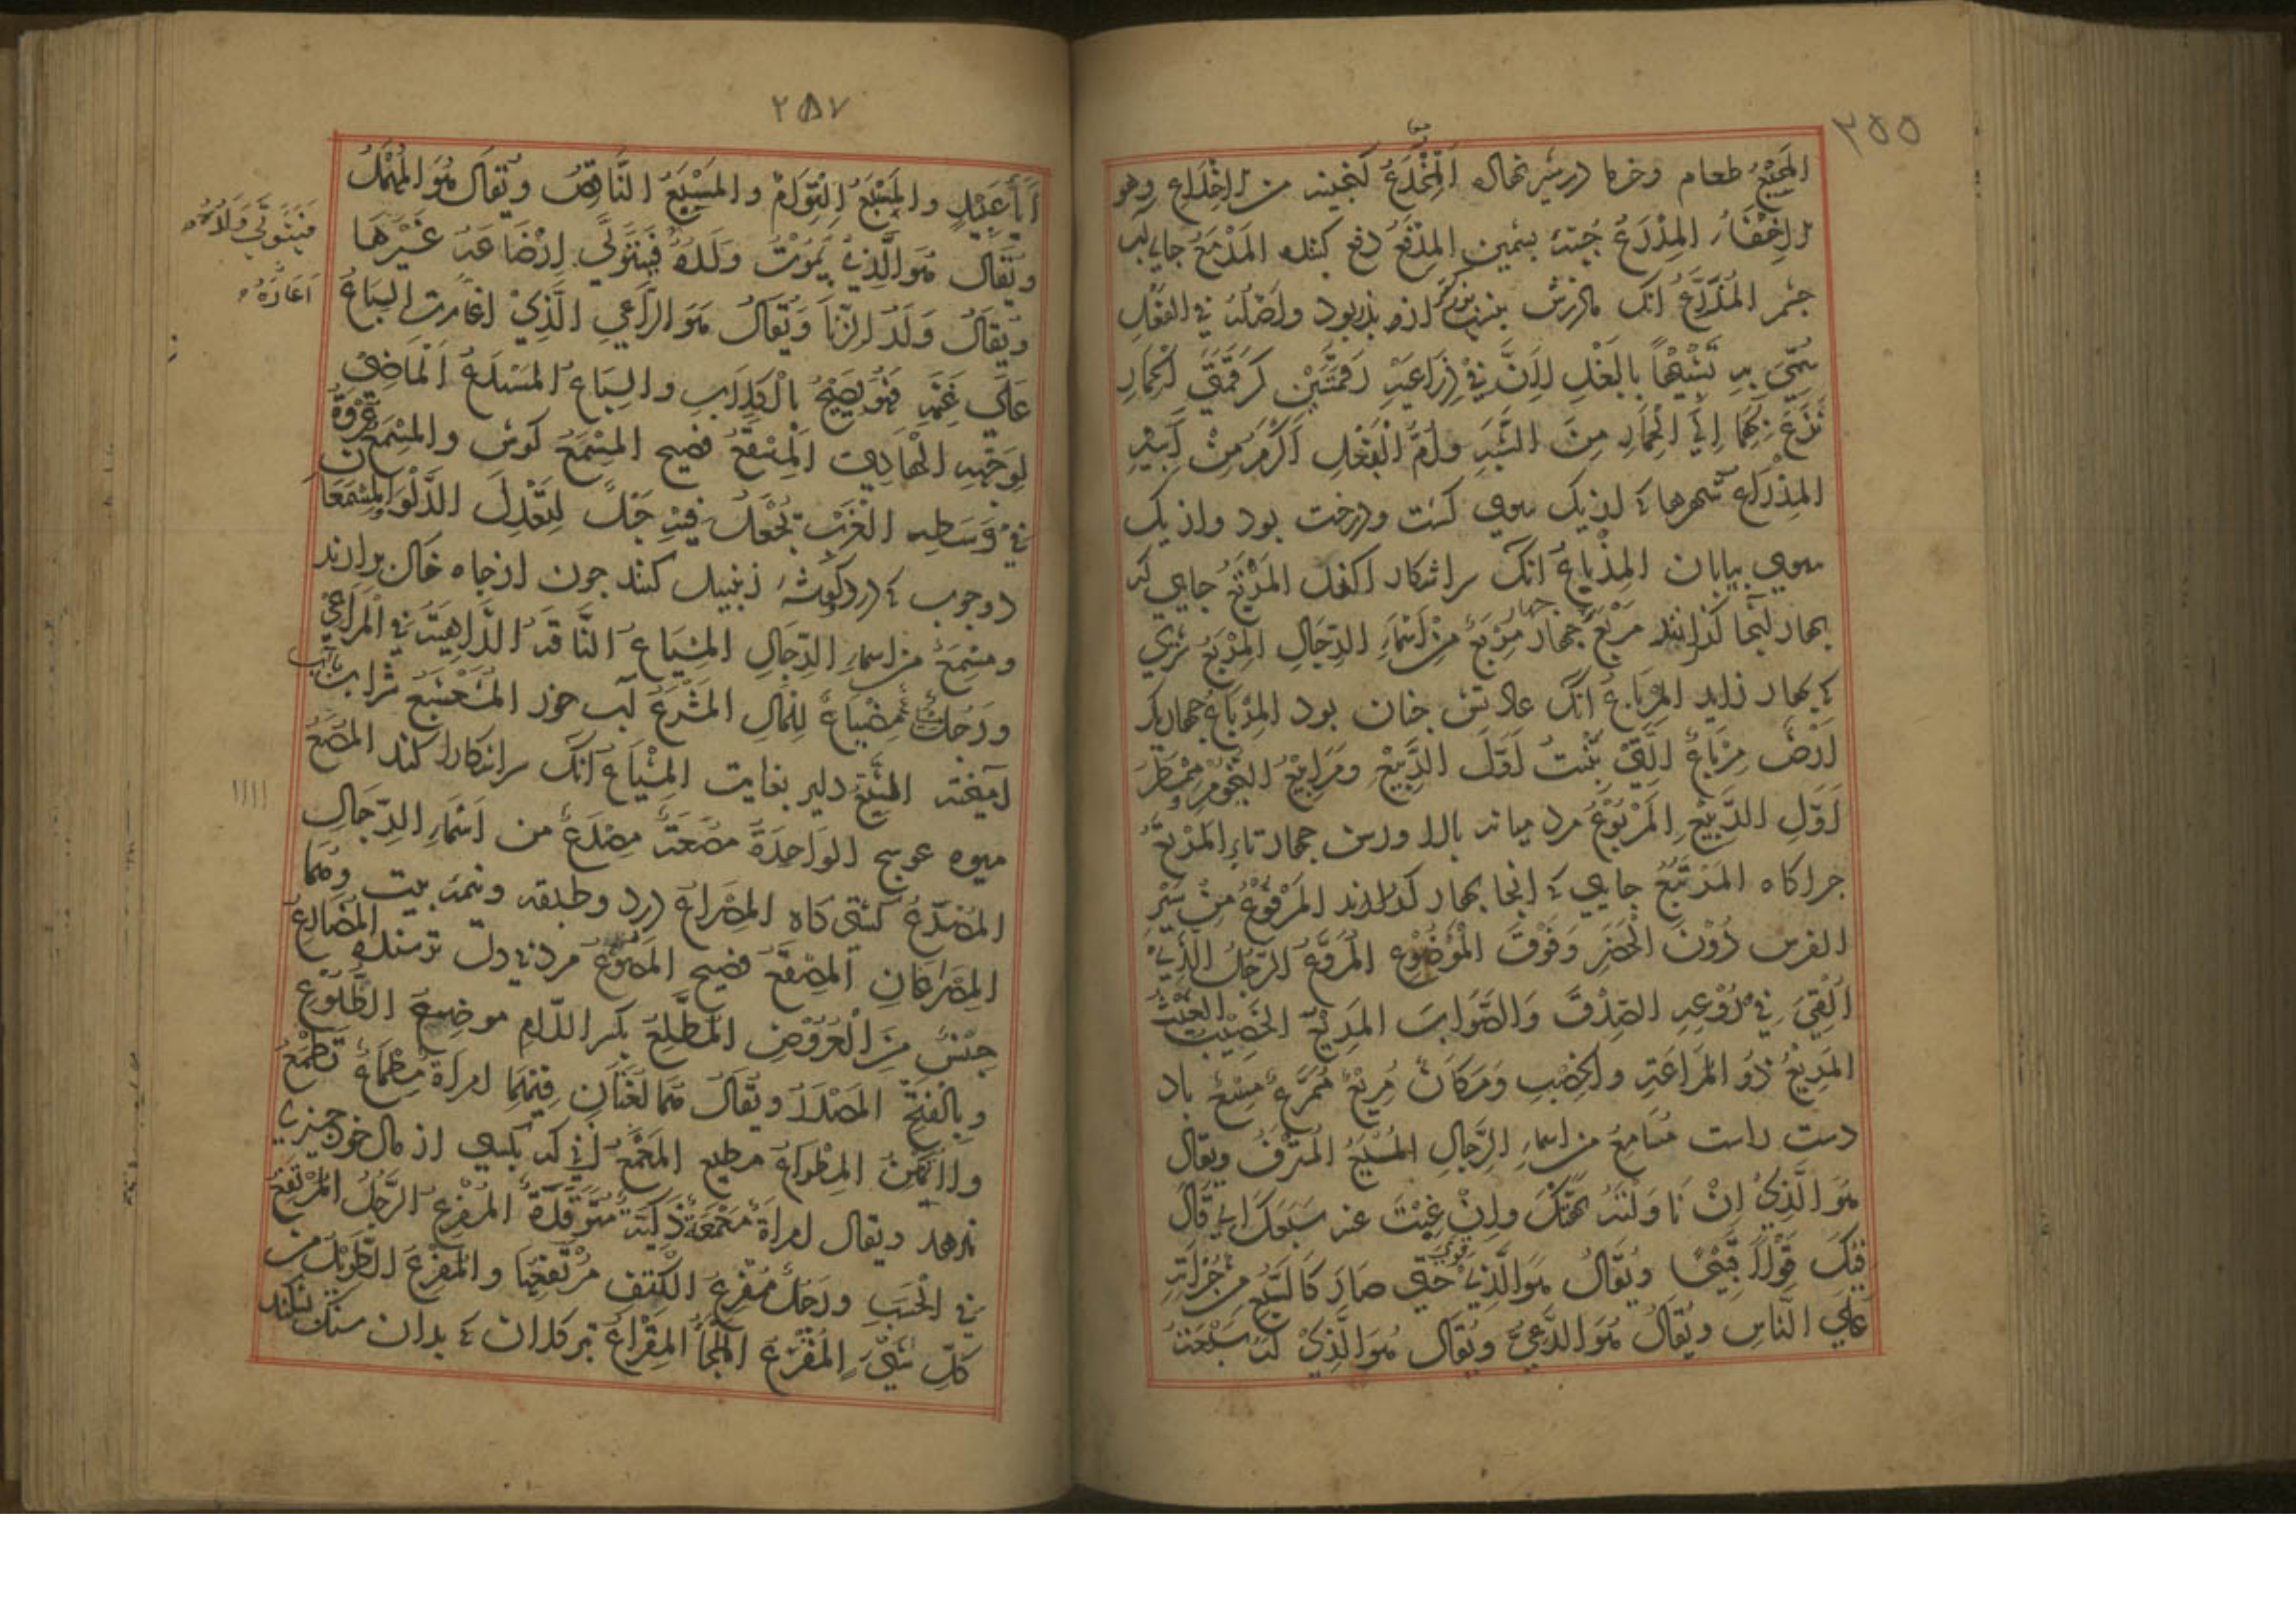 ٢٥٥
المجیع طعام وخرما در شیر نهاله المخدع کنجینه من الاخداع وهو
الاخفاء المدرع جبه بشمین المدفع دفع کننده المدمع جای آب
جشم المذرع انک ماذرش بزرکتر از بذر بود واصله فی البغل
سمی به تشبیها بالبغل لان فی ذراعیه رقمتین کرقمتی الحمار
نزع بهما الی الحمار من الشبه وام البغل اکرم من ابیه
المذراع شهرها که از یک سوی کشت ودرخت بود واز یک
سوی بیابان المذیاع انک سر اشکار کند المربع جای که
بهار آنجا کذرانند مربع جهار مربع من اسماء الرجال المربع شتری
که بهار زاید المرباع انک عادتش جنان بود المرباع جهار یک
ارض مرباع التی تنبت اول الربیع ومرابیع النجوم
اول الربیع المربوع مرد میانه بالا ورسن جهار تاء المرتع
جراکاه المرتبع جایی که انجا بهار کذرانند المرفوع من سیر
الفرس دون الحضر وفوق الموضوع المروع الرجل الذی
القی فی روعه الصدق والصواب المریع الخصیب
المریع ذو المراعة والخصب ومکان مریع ممرع مسع باد
دست راست مسامع من اسماء الرجال المسبع المترف ویقال
هو الذی ان ناولته وان غبت عنه سبعک ای قال
فیک قولا قبیحا ویقال هو الذی قوی حتی صار کالسبع من جراته
علی الناس ویقال هو الدعی ویقال هو الذی سبعته
٢٥٧
والمسبع التوام والمسبع الناقص ویقال هو المهمل
ویقال هو الذی یموت ولده فیتولی ارضاعه غیرها
ویقال ولد الزنا ویقال هو الراعی الذی اغارت السباع
علی غنمه فهو یصیح بالکلاب والسباع المسدع الماضی
لوجهه الهادی المسقع فصیح المسمع کوش والمسمع عروة
فی وسط الغرب یجعل فیه حبل لتعدل الدلو والمسمعان
دو جوب که در کوشه زنبیل کنند جون از جاه خاک برارند
ومسمع من اسماء الرجال المسیاع الناقة الذاهبة فی المراعی
ورجل مسیاع مضیاع للمال المشرع آب خور المشعشع شراب بآب
آمیخته المشیع دلیر بغایت المشیاع انک سر اشکارا کند المصع
میوه عوسج الواحدة مصعة مصدع من اسماء الرجال
المصرع کشتی کاه المصراع در دو طبقه ونیمه بیت وهما
المصراعان المصقع فصیح مردنی دل ترسنده المضارع
جنس من العروض المطلع بکسر اللام موضع الطلوع
وبالفتح المصدر ویقال هما لغتان فیهما امراة مطماع تطمع
ولا تمکن المطواع مطیع بکسی از مال خود جیزی
ندهد ویقال امراة ذکیة متوقدة المفرع الرجل المرتفع
فی الحسب ورجل مفرع الکتف مرتفعها والمفرع الطویل من
کل شیء المفزع الملجأ المقراع تبر کلان که بدان سنک شکنند
فیتولی ولادته
اغارة